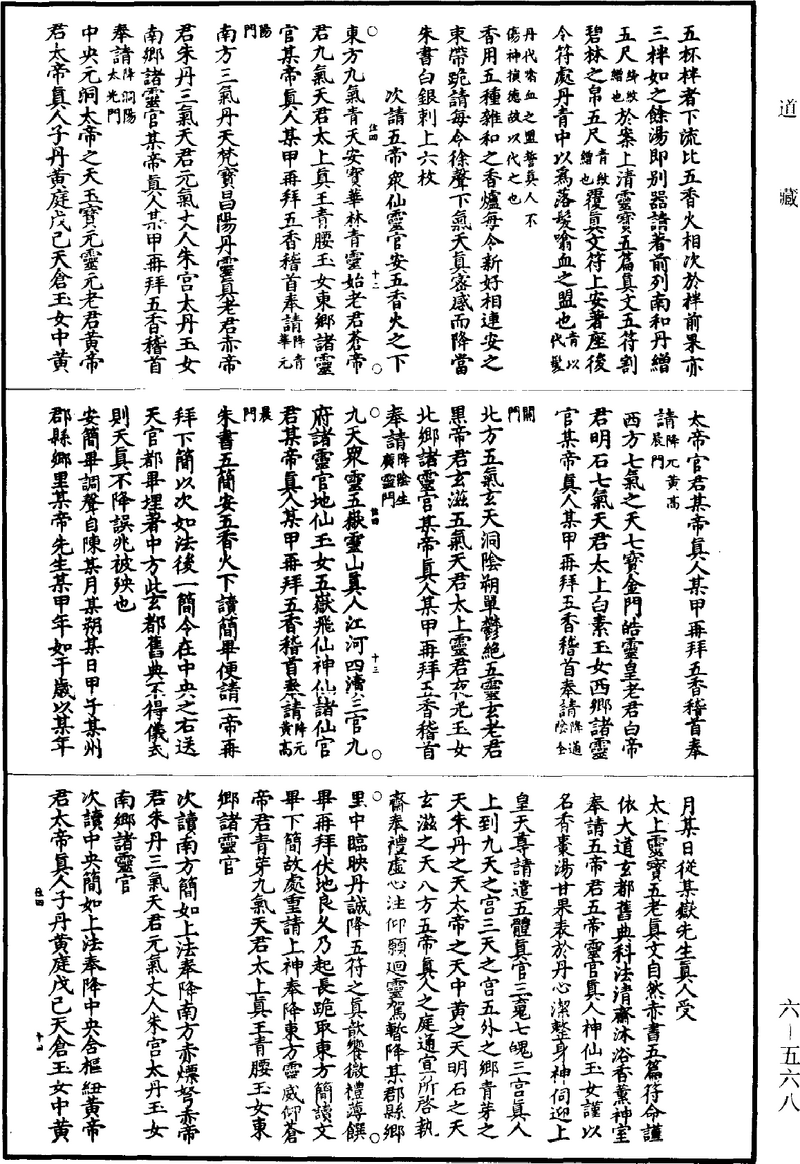 道藏
五杯柈者下流比五香火相次於柈前果亦
三柈如之餘湯即別器請著前列南和丹繒
五尺絳紋繒也於案上清靈寶五篇真文五符割
碧林之帛五尺青紋繒也覆真文符上安著座後
令符處丹青中以為落髮喻血之盟也青以代髮
丹代歃血之盟誓真人不
傷神損德故以代之也
香用五種雜和之香爐每令新好相連安之
束帶跪請每令徐聲下氣天真密感而降當
朱書白銀刺上六枚
次請五帝眾仙靈官安五香火之下
東方九氣青天安寶華林青靈始老君蒼帝
君九氣天君太上真王青腰玉女東鄉諸靈
官某帝真人某甲再拜五香稽首奉請降青華元
陽門
南方三氣丹天梵寶昌陽丹靈真老君赤帝
君朱丹三氣天君元氣丈人朱宮太丹玉女
南鄉諸靈官某帝真人某甲再拜五香稽首
奉請降洞陽太光門
中央元洞太帝之天玉寶元靈元老君黃帝
君太帝真人子丹黃庭戊己天倉玉女中黃
太帝官君某帝真人某甲再拜五香稽首奉
請降元黃高晨門
西方七氣之天七寶金門皓靈皇老君白帝
君明石七氣天君太上白素玉女西鄉諸靈
官某帝真人某甲再拜五香稽首奉請降通陰金
闕門
北方五氣玄天洞陰朔單鬱絕五靈玄老君
黑帝君玄滋五氣天君太上靈君夜光玉女
北鄉諸靈官某帝真人某甲再拜五香稽首
奉請降陰生廣靈門
九天眾靈五嶽靈山真人江河四瀆三官九
府諸靈官地仙玉女五嶽飛仙神仙諸仙官
君某帝真人某甲再拜五香稽首奉請降元黃高
晨門
朱書五簡安五香火下讀簡畢便請一帝再
拜下簡以次如法後一簡令在中央之右送
天官都畢埋著中方此玄都舊典不得儀式
則天真不降誤兆被殃也
安簡畢調聲自陳某月某朔某日甲子某州
郡縣鄉里某帝先生某甲年如干歲以某年
月某日從某嶽先生真人受
太上靈寶五老真文自然赤書五篇符命謹
依大道玄都舊典科法清齋沐浴香薰神室
奉請五帝君五帝靈官真人神仙玉女謹以
名香棗湯甘果表於丹心潔整身神伺迎上
皇天尊請遣五體真官三魂七魄三宮真人
上到九天之宮三天之宮五外之鄉青芽之
天朱丹之天太帝之天中黃之天明石之天
玄滋之天八方五帝真人之庭通宣所啓執
齋奉禮虛心注仰願迴靈駕暫降某郡縣鄉
里中臨映丹誠降五符之真歆饗微禮薄饌
畢再拜伏地良久乃起長跪取東方簡讀文
畢下簡故處重請上神奉降東方靈威仰蒼
帝君青芽九氣天君太上真王青腰玉女東
鄉諸靈官
次讀南方簡如上法奉降南方赤熛弩赤帝
君朱丹三氣天君元氣丈人朱宮太丹玉女
南鄉諸靈官
次讀中央簡如上法奉降中央含樞紐黃帝
君太帝真人子丹黃庭戊己天倉玉女中黃
六-五六八